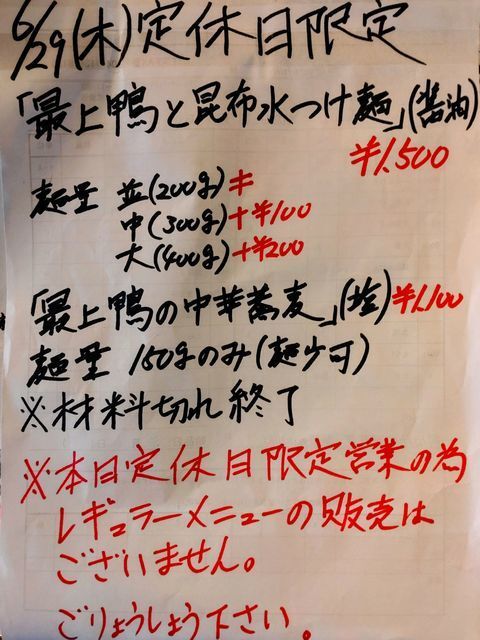 6/29(木)定休日限定
「最上鴨と昆布水つけ麺」(醤油)
¥1,500
麺量 並(200g)キ
中(300g)+¥100
大(400g)+¥200
「最上鴨の中華蕎麦」(塩)¥1,100
麺量 150gのみ(麺少可)
※材料切れ終了
※本日定休日限定営業の為
レギュラーメニューの販売は
ございません。
ごりょうしょう下さい。